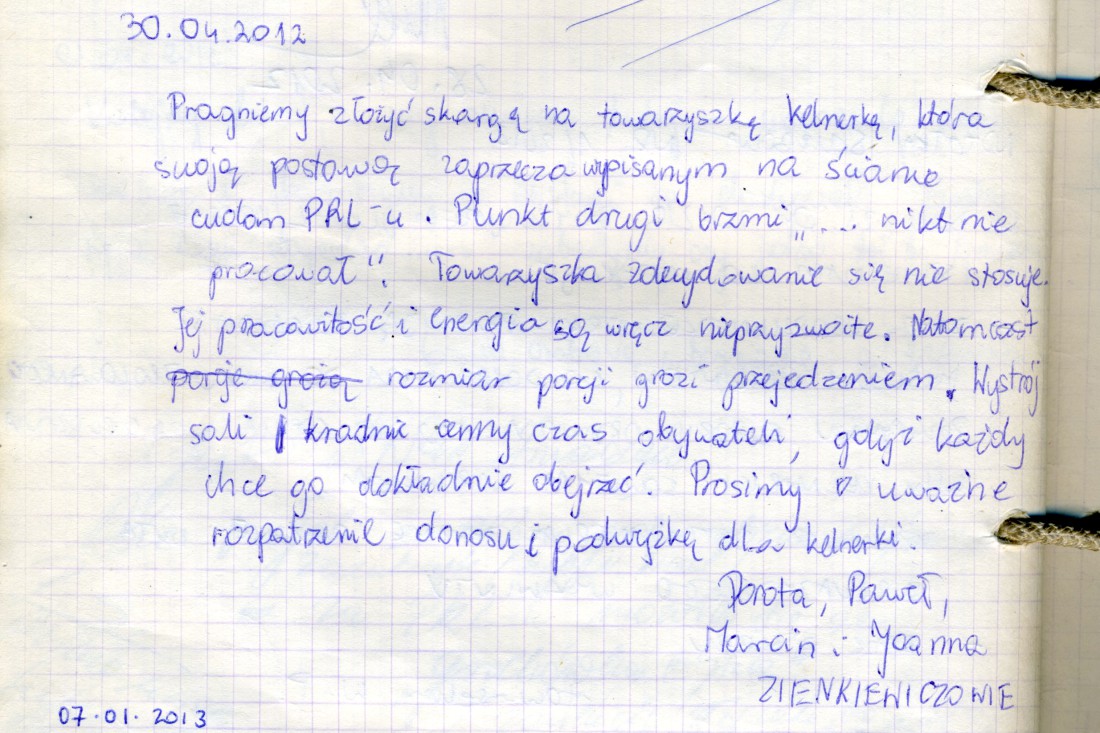 30.04.2012
Pragniemy złożyć skargą na towarzyszkę kelnerkę, która
swoją postawą zaprzecza wypisanym na ścianie
cudom PRL-u. Punkt drugi brzmi „... nikt nie
pracował". Towarzyszka zdecydowanie się nie stosuje.
Jej pracowitość i energia są wręcz nieprzyzwoite. Natomiast
porcje grożą rozmiar porcji grozi przejedzeniem. Wystrój
sali kradnie cenny czas obywateli, gdyż każdy
chce go dokładnie obejrzeć. Prosimy o uważne
rozpatrzenie donosu i podwyżkę dla kelnerki.
Dorota, Paweł,
Marcin i Joanna
ZIENKIEWICZOWIE
07.01.2013